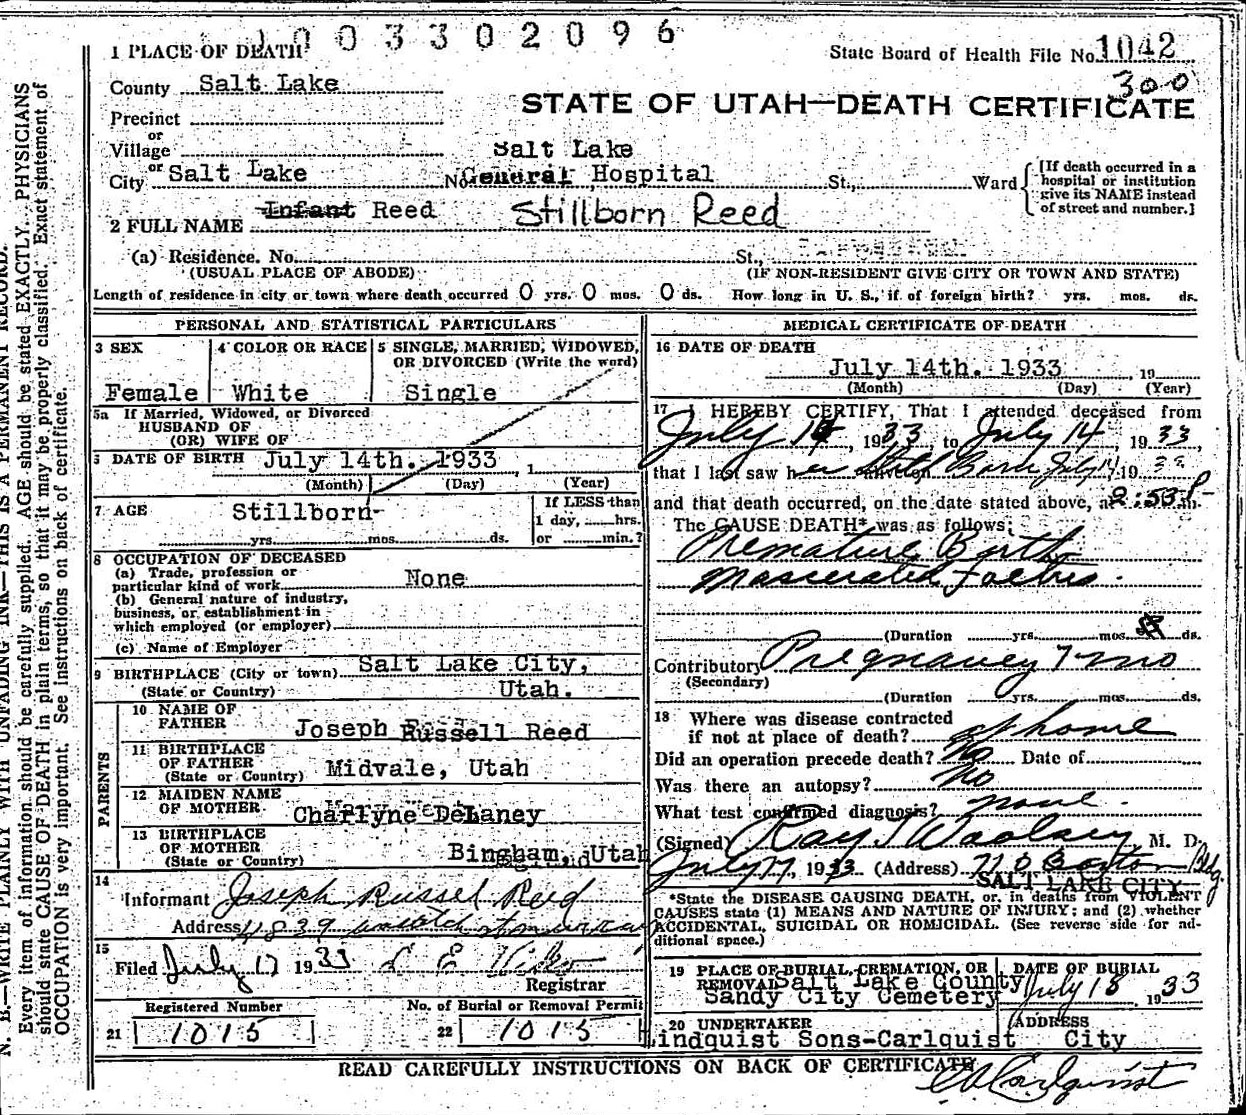 1003302096
1 PLACE OF DEATH
State Board of Health File No. 1042
300
County Salt Lake
STATE OF UTAH—DEATH CERTIFICATE
Precinct
or
Village
Salt Lake
or City Salt Lake No. General Hospital St., Ward
[If death occurred in a hospital or institution give its NAME instead of street and number.]
2 FULL NAME Infant Reed Stillborn Reed
(a) Residence. No. St.,
(USUAL PLACE OF ABODE) (IF NON-RESIDENT GIVE CITY OR TOWN AND STATE)
Length of residence in city or town where death occurred 0 yrs. 0 mos. 0 ds. How long in U. S., if of foreign birth? yrs. mos. ds.
PERSONAL AND STATISTICAL PARTICULARS
3 SEX 4 COLOR OR RACE 5 SINGLE, MARRIED, WIDOWED,
OR DIVORCED (Write the word)
Female White Single
5a If Married, Widowed, or Divorced
HUSBAND OF
(OR) WIFE OF
DATE OF BIRTH July 14th. 1933, 1
(Month) (Day) (Year)
7 AGE Stillborn
If LESS than
1 day, hrs.
yrs. mos. ds. or min.?
8 OCCUPATION OF DECEASED
(a) Trade, profession or
particular kind of work None
(b) General nature of industry,
business, or establishment in
which employed (or employer)
(c) Name of Employer
9 BIRTHPLACE (City or town) Salt Lake City,
(State or Country) Utah.
PARENTS
10 NAME OF
FATHER Joseph Russell Reed
11 BIRTHPLACE
OF FATHER
(State or Country) Midvale, Utah
12 MAIDEN NAME
OF MOTHER Charlyne DeLaney
13 BIRTHPLACE
OF MOTHER
(State or Country) Bingham, Utah
14
Informant Joseph Russel Reed
Address 4839
15
Filed July 17 1933
Registrar
Registered Number No. of Burial or Removal Permit
21 1015 22 1015
MEDICAL CERTIFICATE OF DEATH
16 DATE OF DEATH
July 14th. 1933, 19
(Month) (Day) (Year)
17 I HEREBY CERTIFY, That I attended deceased from
July 14, 1933, to July 14 1933,
that I last saw her alive on Still Born July 14 1933
and that death occurred, on the date stated above, at 2:53 P m.
The CAUSE DEATH* was as follows:
Premature Birth
Mascerated Foetus.
(Duration yrs. mos. ds.
Contributory Pregnancy 7 mo
(Secondary)
(Duration yrs. mos. ds.
18 Where was disease contracted
if not at place of death? at home
Did an operation precede death? No Date of
Was there an autopsy? no
What test confirmed diagnosis? none.
(Signed) Ray T Woolsey M. D.
July 17, 1933 (Address) Boston Bldg.
SALT LAKE CITY
*State the DISEASE CAUSING DEATH, or, in deaths from VIOLENT
CAUSES state (1) MEANS AND NATURE OF INJURY; and (2) whether
ACCIDENTAL, SUICIDAL OR HOMICIDAL. (See reverse side for ad-
ditional space.)
19 PLACE OF BURIAL, CREMATION, OR DATE OF BURIAL
REMOVAL Salt Lake County
Sandy City Cemetery July 18, 1933
20 UNDERTAKER ADDRESS
Lindquist Sons-Carlquist City
READ CAREFULLY INSTRUCTIONS ON BACK OF CERTIFICATE
Carlquist
N. B.—WRITE PLAINLY WITH UNFADING INK—THIS IS A PERMANENT RECORD.
Every item of information should be carefully supplied. AGE should be stated EXACTLY. PHYSICIANS
should state CAUSE OF DEATH in plain terms, so that it may be properly classified. Exact statement of
OCCUPATION is very important. See instructions on back of certificate.